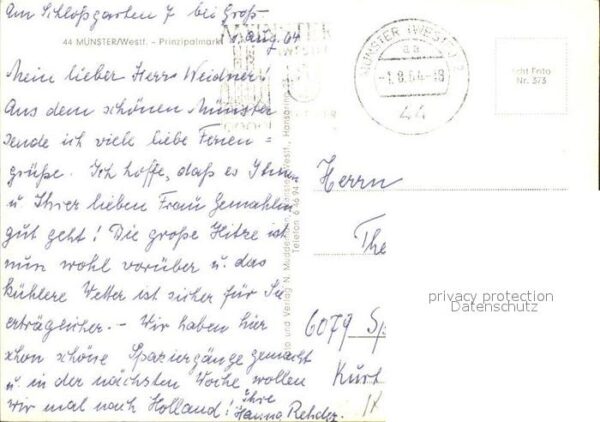 Am Schloßgarten 7 bei Groß
1. Aug. 64
44 MÜNSTER/Westf. – Prinzipalmarkt
Mein lieber Herr Weidner!
Aus dem schönen Münster
sende ich viele liebe Ferien=
grüße. Ich hoffe, daß es Ihnen
u Ihrer lieben Frau Gemahlin
gut geht! Die große Hitze ist
nun wohl vorüber u. das
kühlere Wetter ist sicher für Sie
erträglicher. – Wir haben hier
schon schöne Spaziergänge gemacht
u. in der nächsten Woche wollen
wir mal nach Holland! Ihre
Hanna Rehder.
MÜNSTER
MÜNSTER (WESTF) 2
aa
-1.8.64-18
44
Echt Foto
Nr. 373
und Verlag N.
Telefon
Herrn
The
6079 Sp
Kurt
privacy protection
Datenschutz